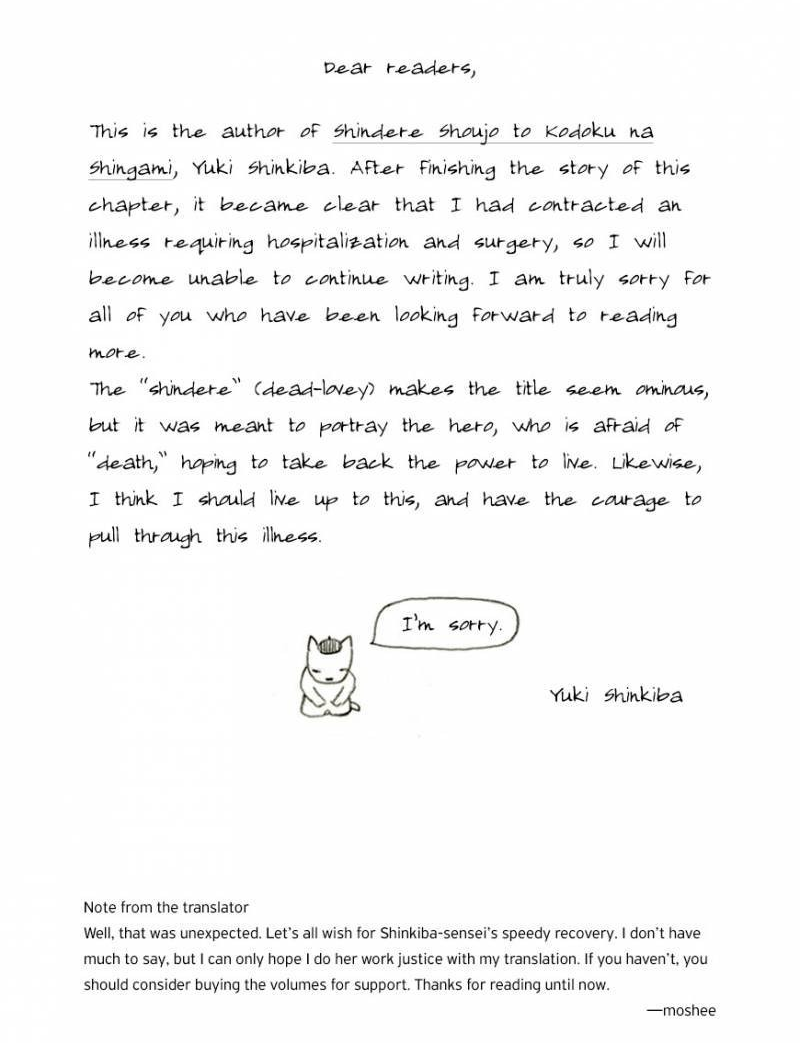 Dear readers,
This is the author of Shindere Shoujo to Kodoku na
Shingami, Yuki Shinkiba. After finishing the story of this
chapter, it became clear that I had contracted an
illness requiring hospitalization and surgery, so I will
become unable to continue writing. I am truly sorry for
all of you who have been looking forward to reading
more.
The "shindere" (dead-lovey) makes the title seem ominous,
but it was meant to portray the hero, who is afraid of
"death," hoping to take back the power to live. Likewise,
I think I should live up to this, and have the courage to
pull through this illness.
I'm sorry.
Yuki Shinkiba
Note from the translator
Well, that was unexpected. Let's all wish for Shinkiba-sensei's speedy recovery. I don't have
much to say, but I can only hope I do her work justice with my translation. If you haven't, you
should consider buying the volumes for support. Thanks for reading until now.
—moshee